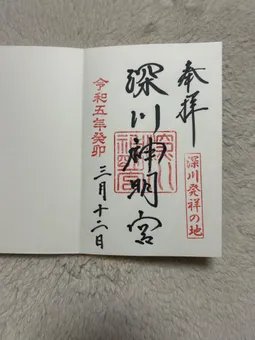 奉拝
深川発祥の地
深川神明宮
令和五年癸卯
三月十二日